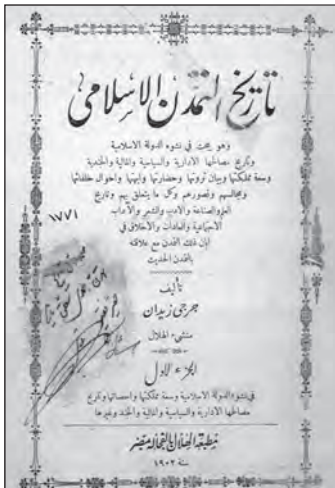 تاريخ التمدن الاسلامى
وهو يبحث في نشوء الدولة الاسلامية
وتاريخ مصالحها الادارية والسياسية والمالية والجندية
وسعة مملكتها وبيان ثروتها وحضارتها وابهتها واحوال خلفائها
ومجالسهم وقصورهم وكل ما يتعلق بهم وتاريخ
العلم والصناعة والادب والشعر والآداب
الاجتماعية والعادات والاخلاق في
ابان ذلك التمدن مع علاقته
بالتمدن الحديث
١٧٧١
تأليف
جرجي زيدان
منشىء الهلال
الجزء الاول
في نشوء الدولة الاسلامية وسعة مملكتها واحصائها وتاريخ
مصالحها الادارية والسياسية والمالية والجند وغيرها
مطبعة الهلال بالفجالة بمصر
سنة ١٩٠٢